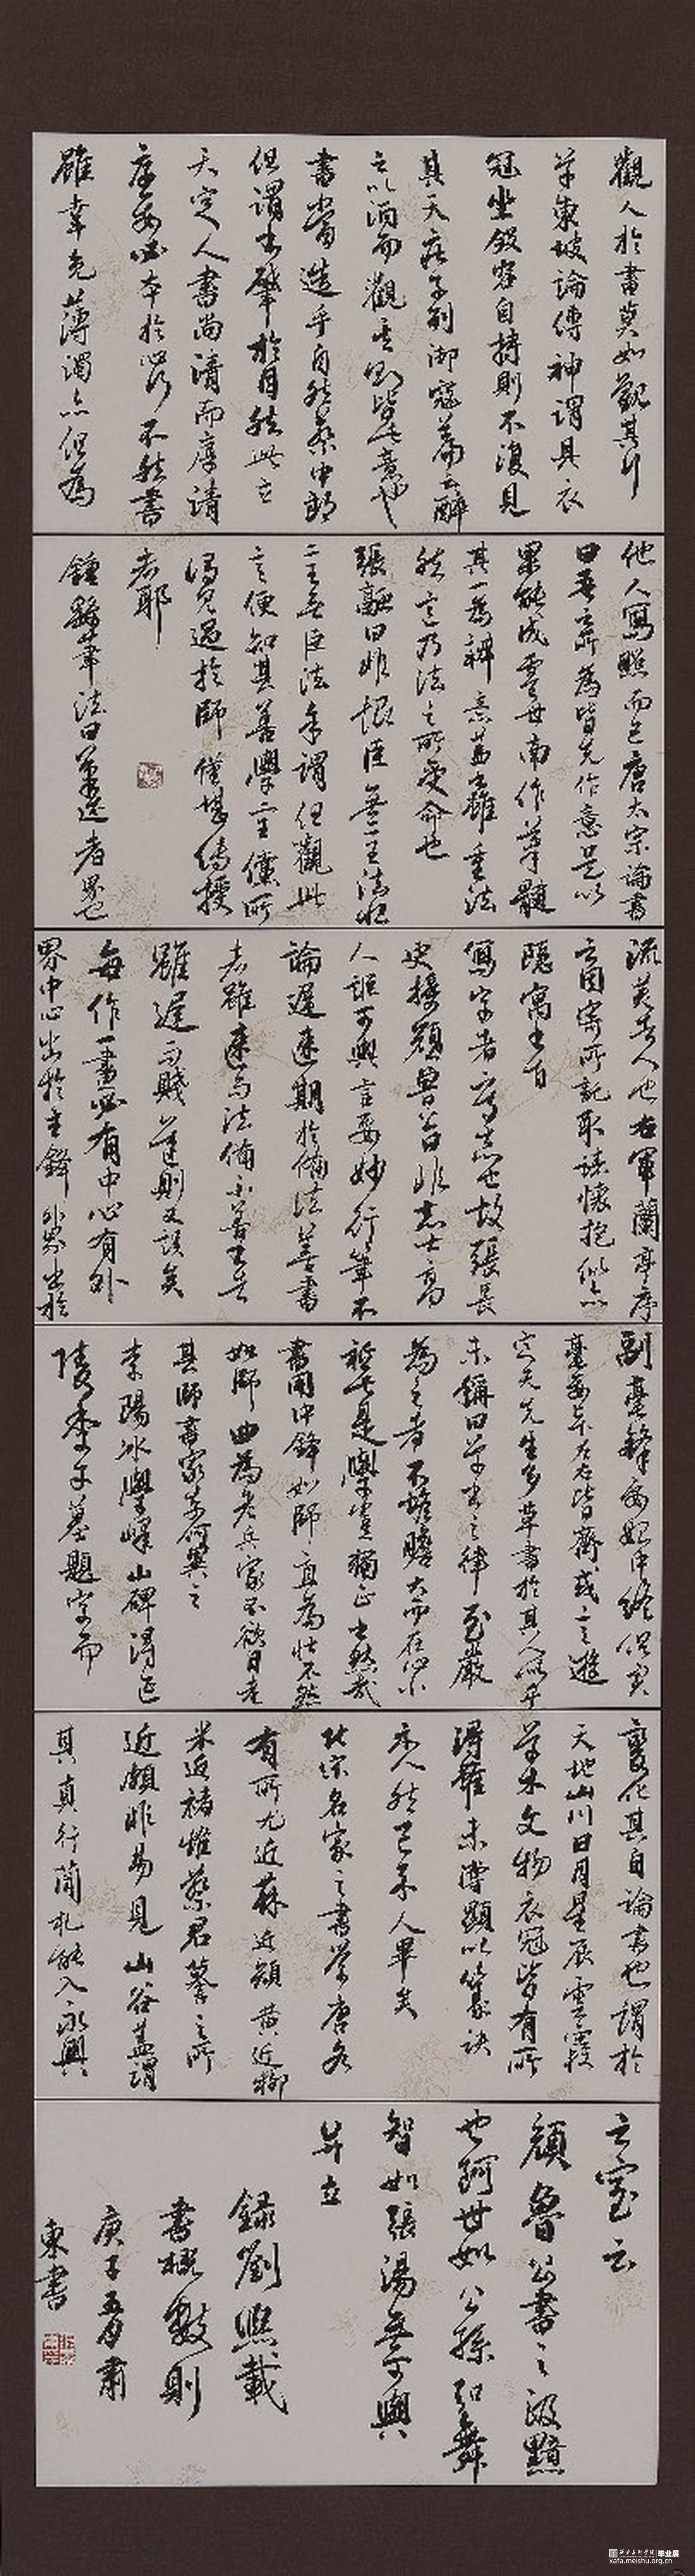 觀人於書莫如觀其行
草東坡論傳神謂具衣
冠坐斂容自持則不復見
其天莊子列御寇篇云醉
之以酒而觀其則皆此意也
書當造乎自然蔡中郎
但謂書肇於自然此立
天定人書尚清而厚清
厚要必本於心行不然書
雖幸免薄濁亦但為
他人寫照而已唐太宗論書
曰吾之所為皆先作意是以
果能成虞世南作筆髓
其一為辨意蓋書雖重法
然意乃法之所受命也
張融曰非恨臣無二王法恨
二王無臣法余謂但觀此
言便知其善學二王儻所
謂見過於師僅堪傳授
者耶
鍾繇筆法曰筆迹者界也
流美者人也右軍蘭亭序
言因寄所託取諸懷抱似亦
隱寓書旨
寫字者寫志也故張長
史授顏魯公曰非志士高
人詎可與言要妙行筆不
論遲速期於備法善書
者雖速而法備不善書者
雖遲而賤遲則又誤矣
每作一畫必有中心有外
界中心出於主鋒外界出於
副毫鋒要始中終俱實
毫要上下左右皆齊或言遊
定夫先生多草書於其人似乎
未稱曰草書之律至嚴
為之者不惟膽大而在心小
祇此是學豈獨正書然哉
書用中鋒如師直為壯不然
如師曲為老兵家不欲自老
其師書家奈何異之
李陽冰學嶧山碑得延
陵季子墓題字而
變化其自論書也謂於
天地山川日月星辰雲霞
草木文物衣冠皆有所
得雖未嘗顯以篆訣
示人然已示人畢矣
北宋名家之書學唐各
有所尤近蘇近顏黃近柳
米近褚惟蔡君謨之所
近頗非易見山谷蓋謂
其真行簡札能入永興
之室云
顏魯公書書之汲黯
也阿世如公孫弘舞
智如張湯無可與
並立
錄劉熙載
書概數則
庚子五月肅
東書
西安美術學院 毕业展
xafa.meishu.org.cn